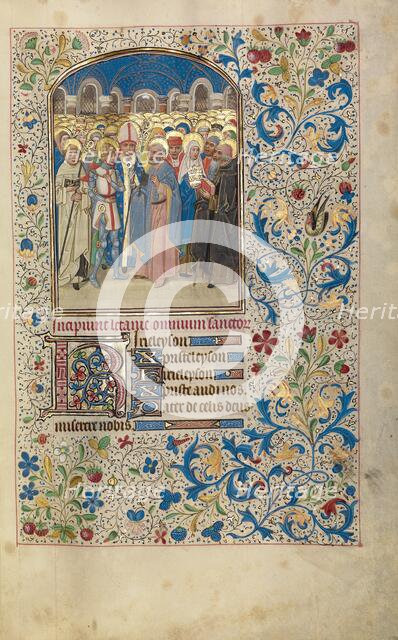 Incipiunt letanie omnium sanctor
Kirieleyson
Xpisteleyson
Kirieleyson
Xpiste audi nos,
Pater de celis deus
miserere nobis
Heritage